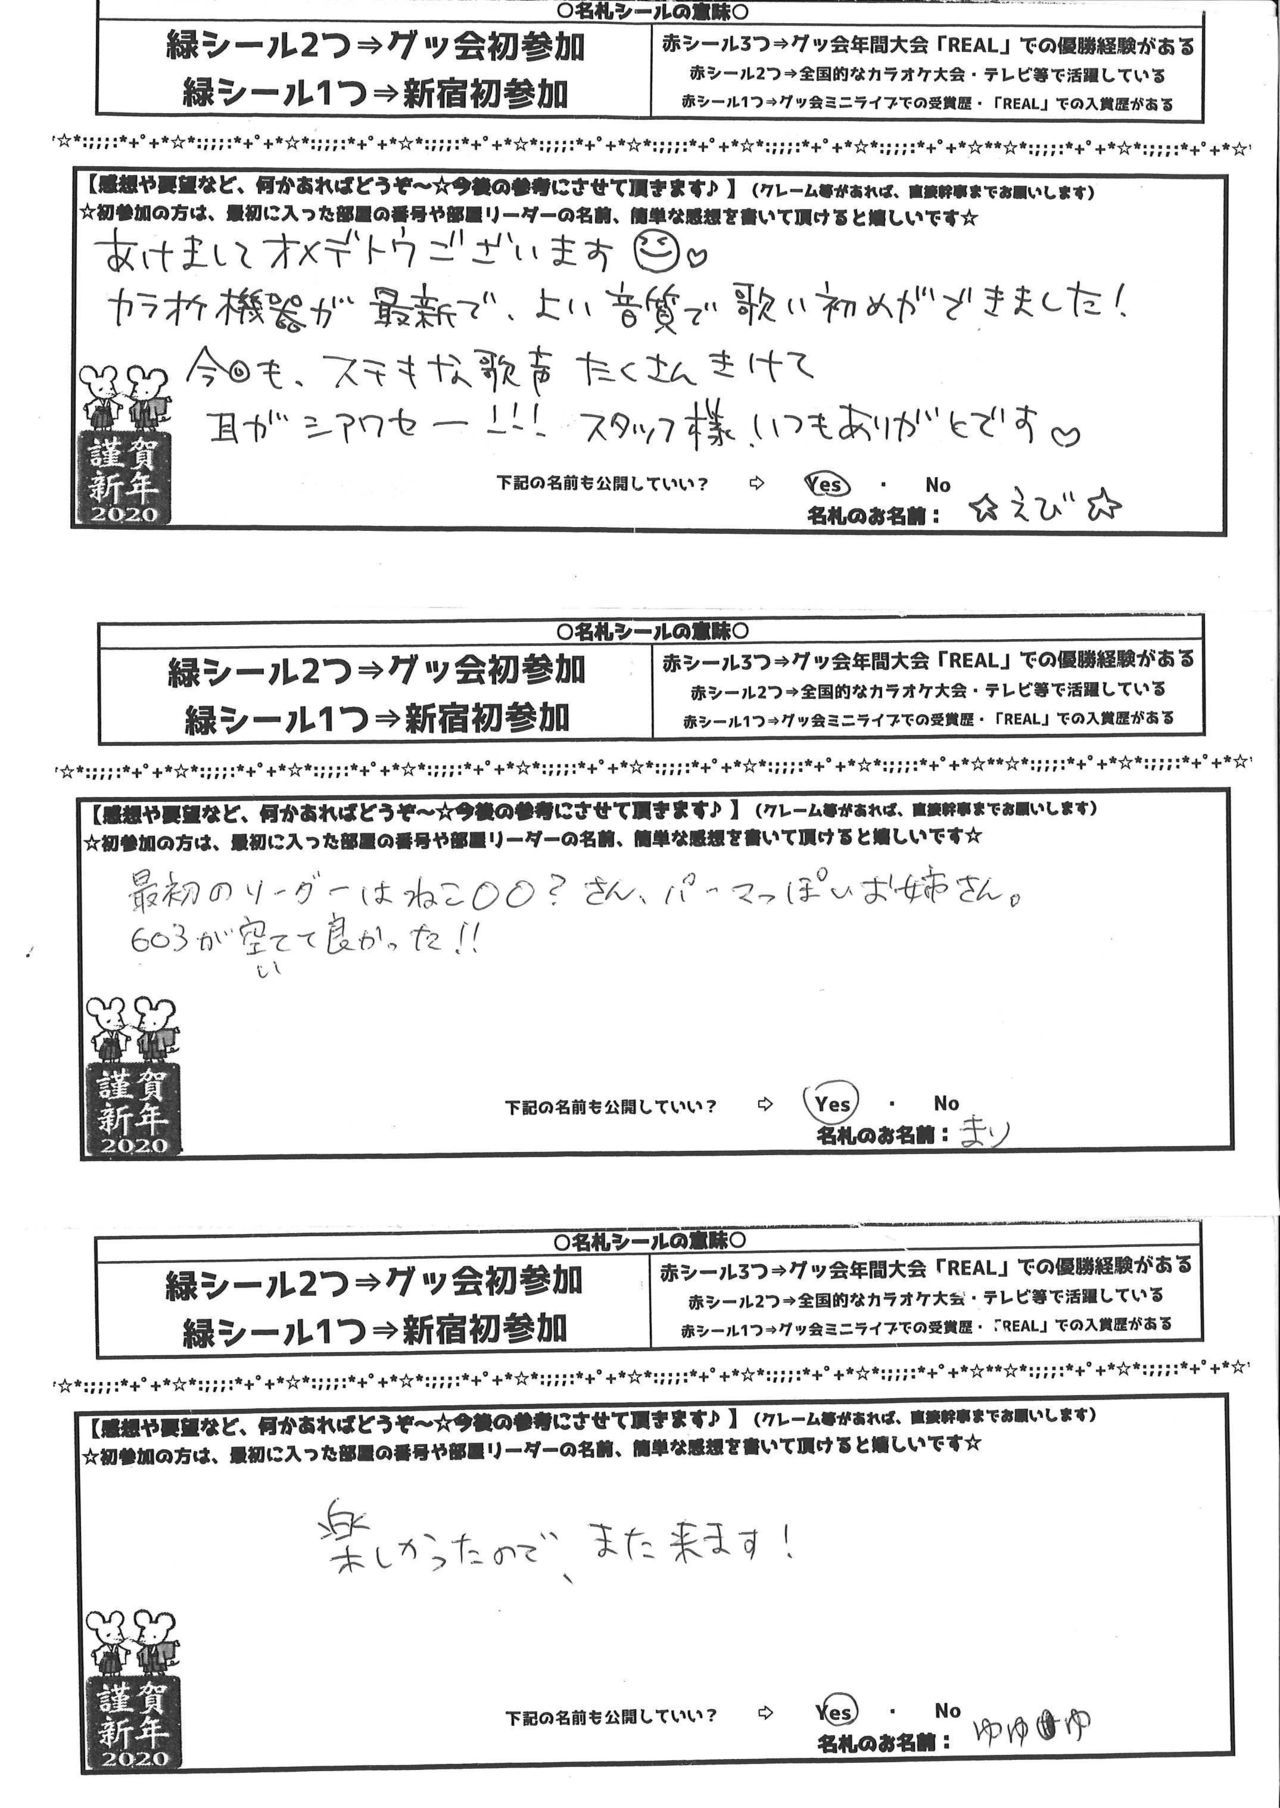 ○名札シールの意味○
緑シール2つ⇒グッ会初参加
緑シール1つ⇒新宿初参加
赤シール3つ⇒グッ会年間大会「REAL」での優勝経験がある
赤シール2つ⇒全国的なカラオケ大会・テレビ等で活躍している
赤シール1つ⇒グッ会ミニライブでの受賞歴・「REAL」での入賞歴がある
【感想や要望など、何かあればどうぞ～☆今後の参考にさせて頂きます♪】(クレーム等があれば、直接幹事までお願いします)
☆初参加の方は、最初に入った部屋の番号や部屋リーダーの名前、簡単な感想を書いて頂けると嬉しいです☆
あけましてオメデトウございます♡
カラオケ機器が最新で、よい音質で歌い初めができました！
今回も、ステキな歌声たくさんきけて
耳がシアワセー!!! スタッフ様、いつもありがとです♡
謹賀
新年
2020
下記の名前も公開していい？ ⇨ Yes ・ No
名札のお名前： ☆えび☆
○名札シールの意味○
緑シール2つ⇒グッ会初参加
緑シール1つ⇒新宿初参加
赤シール3つ⇒グッ会年間大会「REAL」での優勝経験がある
赤シール2つ⇒全国的なカラオケ大会・テレビ等で活躍している
赤シール1つ⇒グッ会ミニライブでの受賞歴・「REAL」での入賞歴がある
【感想や要望など、何かあればどうぞ～☆今後の参考にさせて頂きます♪】(クレーム等があれば、直接幹事までお願いします)
☆初参加の方は、最初に入った部屋の番号や部屋リーダーの名前、簡単な感想を書いて頂けると嬉しいです☆
最初のリーダーはねこ〇〇？さん、パーマっぽいお姉さん。
603が空いてて良かった!!
謹賀
新年
2020
下記の名前も公開していい？ ⇨ Yes ・ No
名札のお名前：まり
○名札シールの意味○
緑シール2つ⇒グッ会初参加
緑シール1つ⇒新宿初参加
赤シール3つ⇒グッ会年間大会「REAL」での優勝経験がある
赤シール2つ⇒全国的なカラオケ大会・テレビ等で活躍している
赤シール1つ⇒グッ会ミニライブでの受賞歴・「REAL」での入賞歴がある
【感想や要望など、何かあればどうぞ～☆今後の参考にさせて頂きます♪】(クレーム等があれば、直接幹事までお願いします)
☆初参加の方は、最初に入った部屋の番号や部屋リーダーの名前、簡単な感想を書いて頂けると嬉しいです☆
楽しかったので、また来ます！
謹賀
新年
2020
下記の名前も公開していい？ ⇨ Yes ・ No
名札のお名前： ゆゆゆ